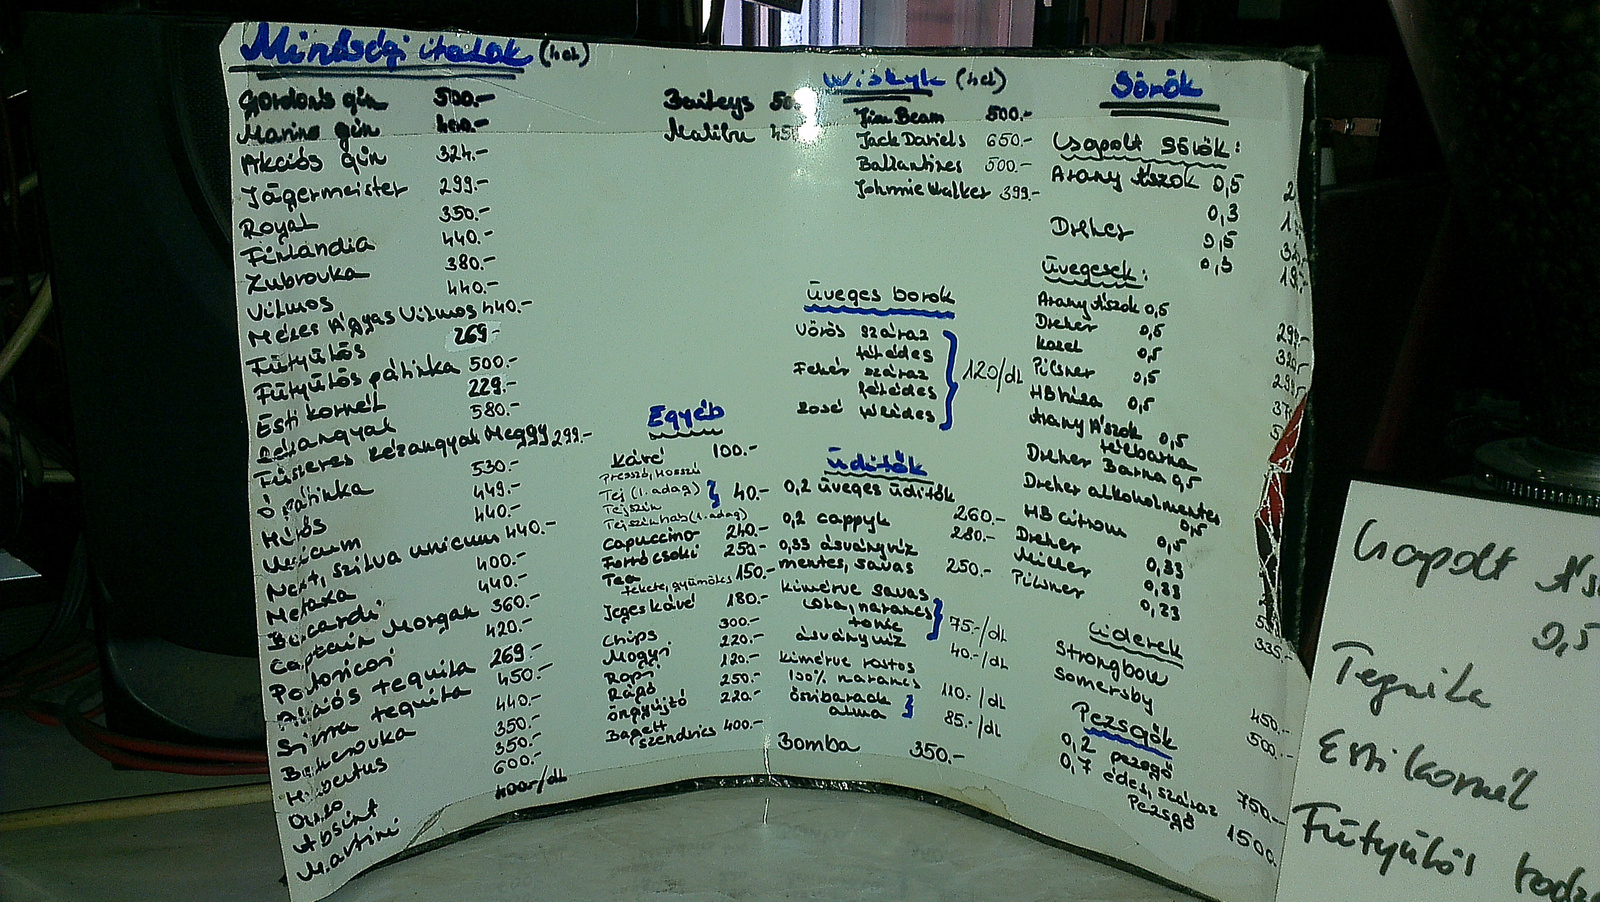 Minőségi italok (4cl)
Gordons gin 500.-
Marine gin 400.-
Akciós gin 324.-
Jägermeister 299.-
Royal 350.-
Finlandia 440.-
Zubrovka 380.-
Vilmos 440.-
Mézes Ágyas Vilmos 440.-
Fütyülős 269.-
Fütyülős pálinka 500.-
Esti kornél 229.-
580.-
Fűszeres Kézangyal Meggy 299.-
Ó pálinka 530.-
449.-
Unicum 440.-
Next, szilva unicum 440.-
Metaxa 400.-
Bacardi 440.-
Captain Morgan 360.-
420.-
Akciós tequila 269.-
Sierra tequila 450.-
Becherovka 440.-
Hubertus 350.-
Ouzo 350.-
Absint 600.-
Martini 400-/dL
Baileys
Malibu
Egyéb
Kávé 100.-
Presszó, Hosszú
Tej (1. adag)
Tejszín 40.-
Tejszínhab (1. adag)
Capuccino 240.-
Forró csoki 250.-
Tea
fekete, gyümölcs 150.-
Jegeskávé 180.-
Chips 300.-
Mogyi 220.-
Ropi 120.-
Rágó 250.-
Öngyújtó 220.-
Bagett
szendvics 400.-
Wiskyk (4cl)
Jim Beam 500.-
Jack Daniels 650.-
Ballantines 500.-
Johnnie Walker 399.-
Üveges borok
Vörös száraz
félédes
Fehér száraz 120/dL
félédes
Rosé félédes
Üdítők
0,2 üveges üdítők 260.-
0,2 cappyk 280.-
0,33 ásványvíz
mentes, savas 250.-
kimérve savas
cola, narancs
tonic 75.-/dL
ásványvíz 40.-/dL
kimérve rostos
100% narancs 110.-/dL
őszibarack
alma 85.-/dL
Bomba 350.-
Sörök
Csapolt Sörök:
Arany Ászok 0,5
0,3
Dreher 0,5
0,3
Üvegesek:
Arany Ászok 0,5
Dreher 0,5
Kozel 0,5
Pilsner 0,5
HB búza 0,5
Arany Ászok 0,5
félbarna
Dreher Barna 0,5
Dreher alkoholmentes
0,5
HB citrom 0,5
Dreher 0,33
Miller 0,33
Pilsner 0,33
335.-
Ciderek
Strongbow 450.-
Somersby 500.-
Pezsgők
0,2 pezsgő 750.-
0,7 édes, száraz
Pezsgő 1500.
Csapolt
0,5
Tequila
Esti kornél
Fütyülős